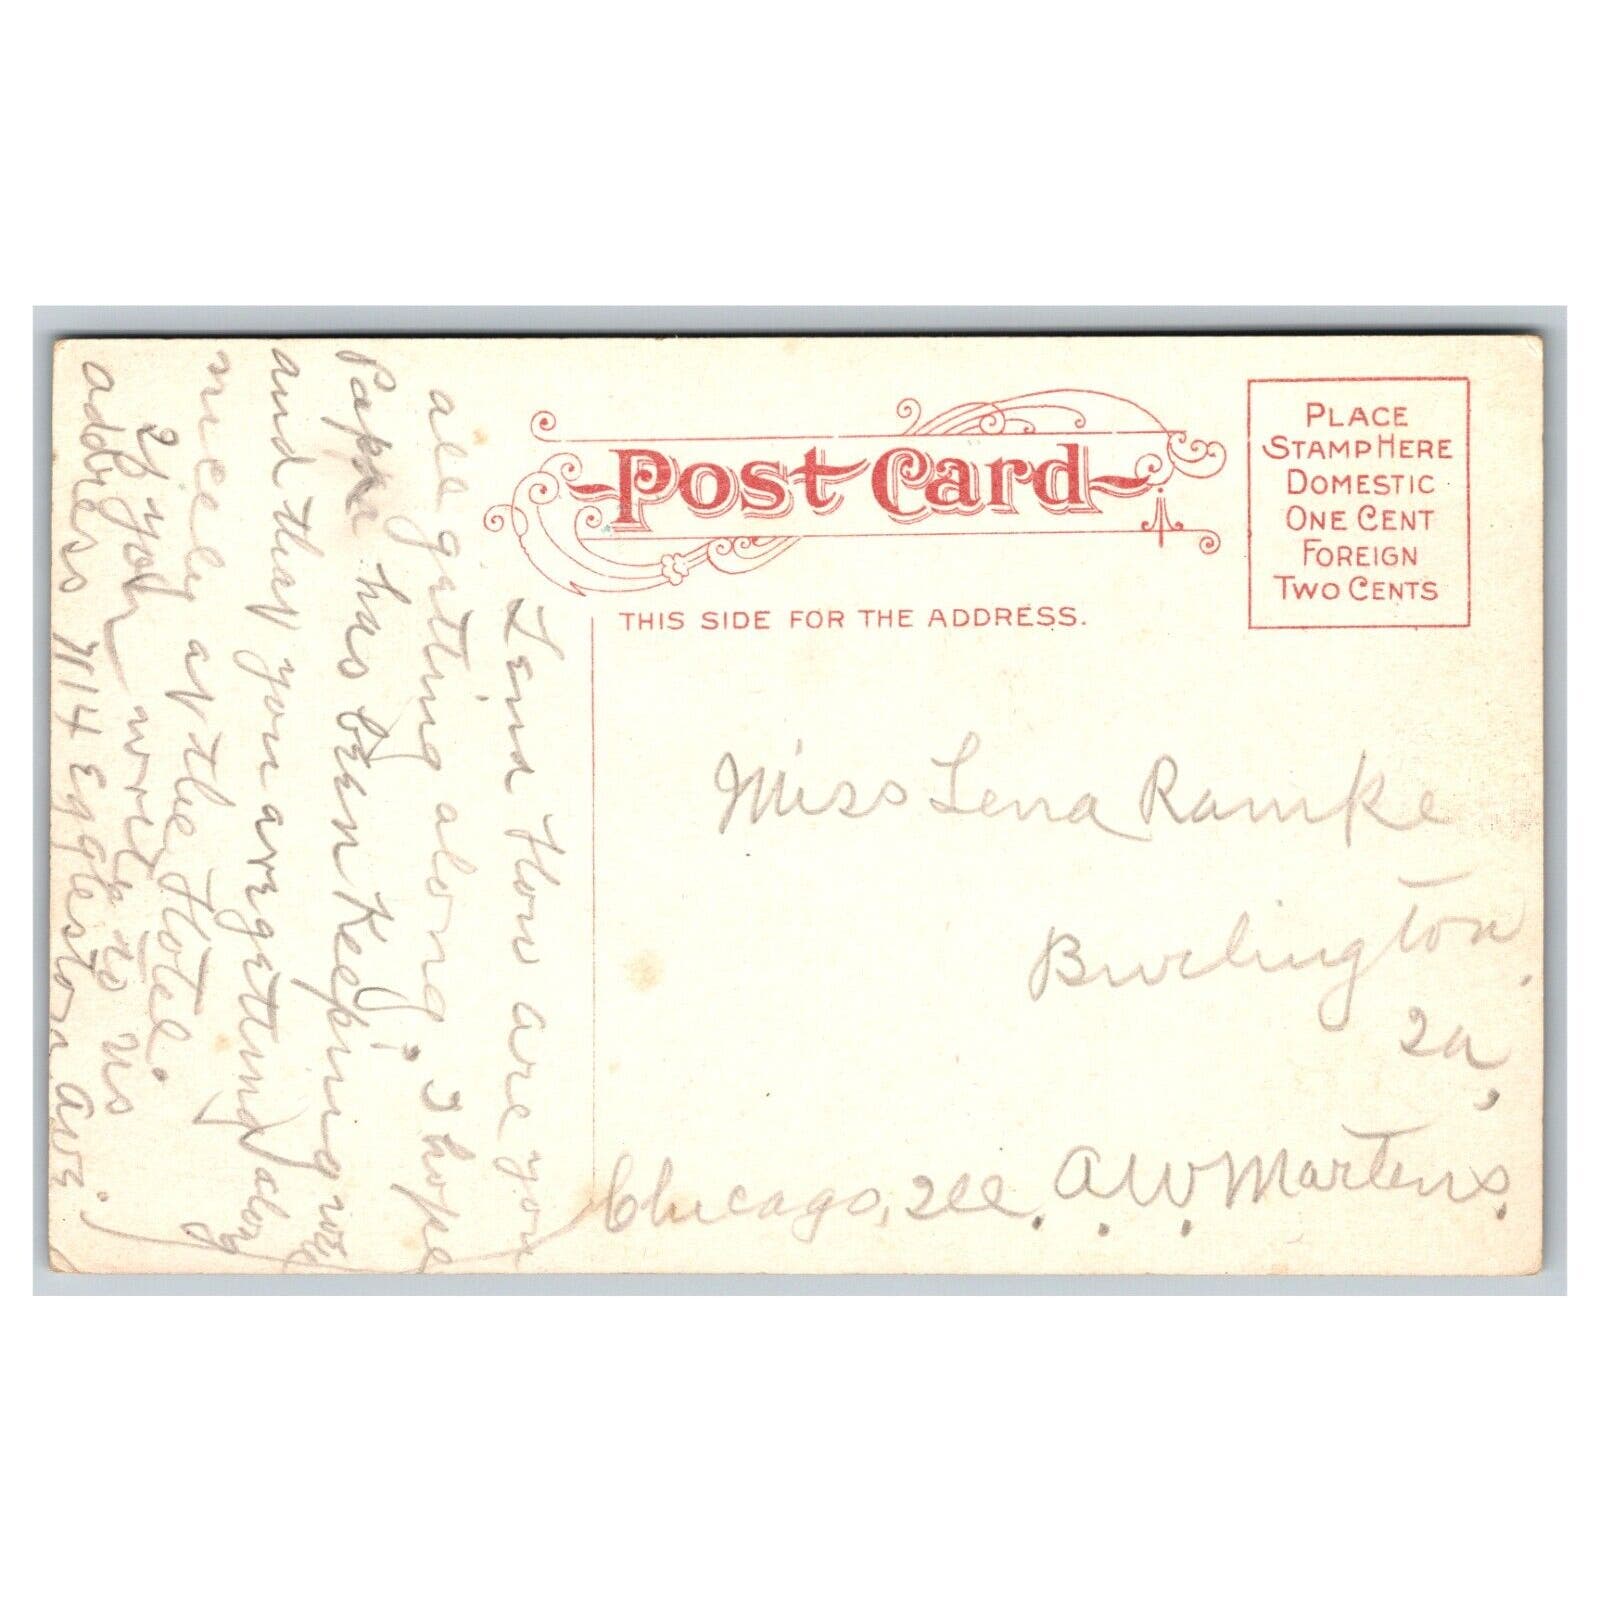 Post Card
THIS SIDE FOR THE ADDRESS.
PLACE
STAMP HERE
DOMESTIC
ONE CENT
FOREIGN
TWO CENTS
Lena How are you
all getting along I hope
Papa has been Keeping well
and that you are getting along
nicely at the Hotel.
If you write to us
address 7114 Eggleston Ave.
Chicago, Ill. A. W. Martens.
Miss Lena Ramke
Burlington,
Ia,